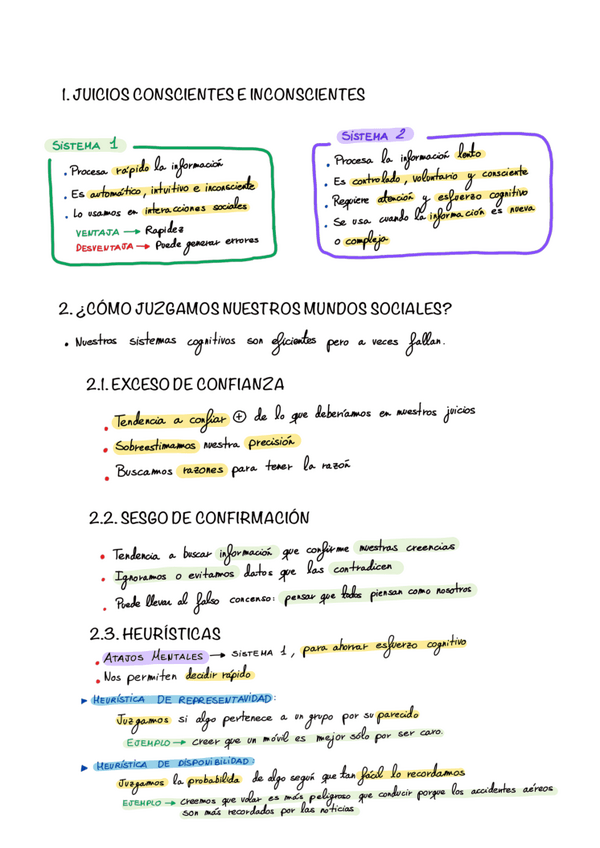 1. JUICIOS CONSCIENTES E INCONSCIENTES
SISTEMA 1
. Procesa rápido la información
. Es automático, intuitivo e inconsciente
. Lo usamos en interacciones sociales
VENTAJA → Rapidez
DESVENTAJA → Puede generar errores
SISTEMA 2
. Procesa la información lento
. Es controlado, voluntario y consciente
. Requiere atención y esfuerzo cognitivo
. Se usa cuando la información es nueva
o compleja
2. ¿CÓMO JUZGAMOS NUESTROS MUNDOS SOCIALES?
• Nuestros sistemas cognitivos son eficientes pero a veces fallan.
2.1. EXCESO DE CONFIANZA
. Tendencia a confiar ⊕ de lo que deberíamos en nuestros juicios
. Sobreestimamos nuestra precisión
. Buscamos razones para tener la razón
2.2. SESGO DE CONFIRMACIÓN
• Tendencia a buscar información que confirme nuestras creencias
. Ignoramos o evitamos datos que las contradicen
. Puede llevar al falso concenso: pensar que todos piensan como nosotros
2.3. HEURÍSTICAS
. ATAJOS MENTALES → SISTEMA 1, para ahorrar esfuerzo cognitivo
• Nos permiten decidir rápido
▶ HEURÍSTICA DE REPRESENTAVIDAD:
Juzgamos si algo pertenece a un grupo por su parecido
EJEMPLO → creer que un móvil es mejor sólo por ser caro.
▶ HEURÍSTICA DE DISPONIBILIDAD:
Juzgamos la probabilida de algo según que tan fácil lo recordamos
EJEMPLO → creemos que volar es más peligroso que conducir porque los accidentes aéreos
son más recordados por las noticias